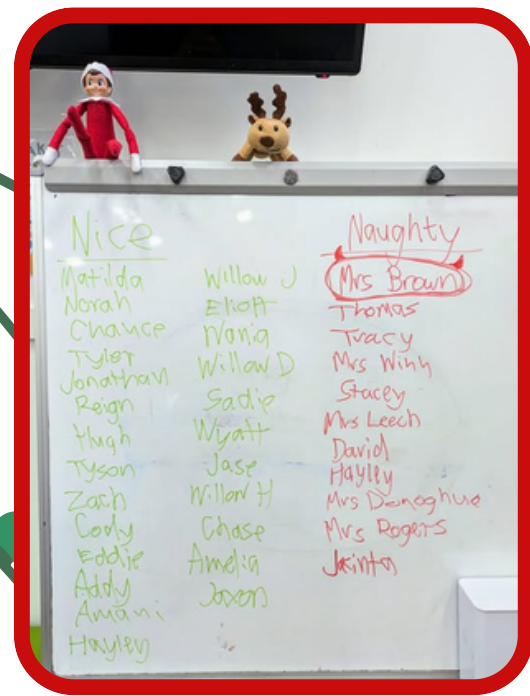 Nice
Matilda
Norah
Chance
Tyler
Jonathan
Reign
Hugh
Tyson
Zach
Cody
Eddie
Addy
Amani
Hayley
Willow J
Eliott
Willow D
Sadie
Wyatt
Jase
Willow H
Chase
Amelia
Jaxon
Naughty
Mrs Brown
Thomas
Tracy
Mrs Winn
Stacey
Mrs Leech
David
Hayley
Mrs Donoghue
Mrs Rogers
Jacinta